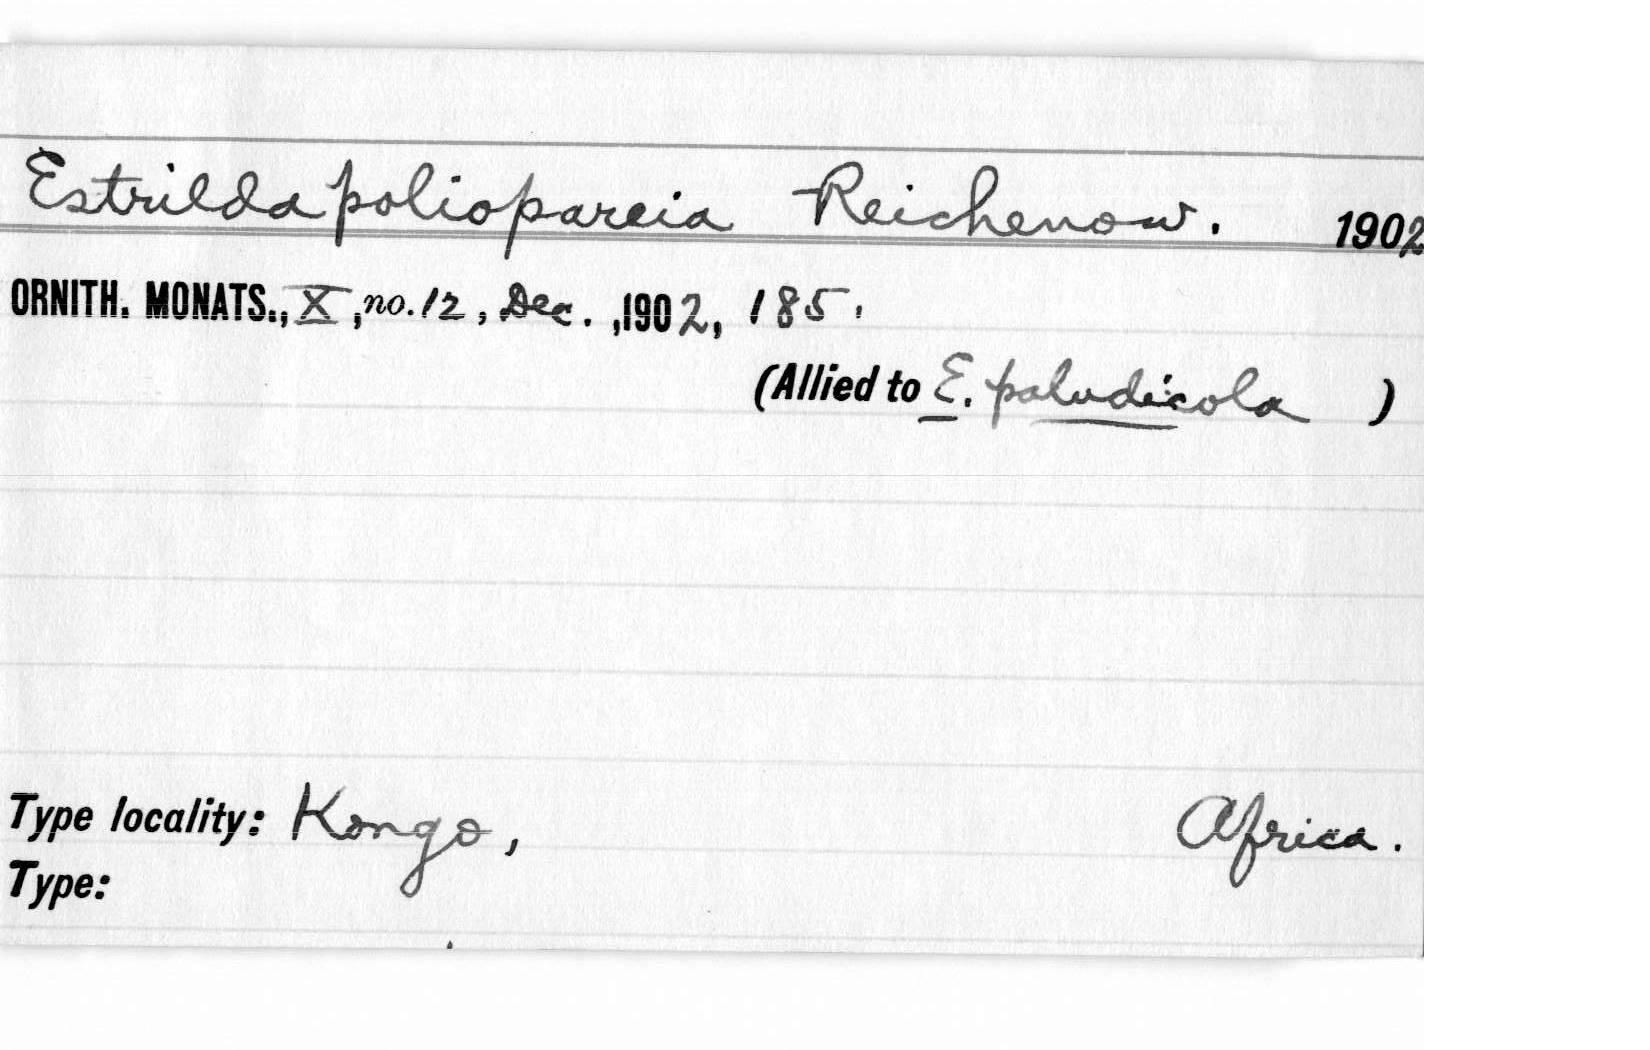 Estrilda poliopareia Reichenow. 1902
ORNITH. MONATS., X, no. 12, Dec. ,1902, 185.
(Allied to E. paludicola )
Type locality: Kongo, Africa.
Type: